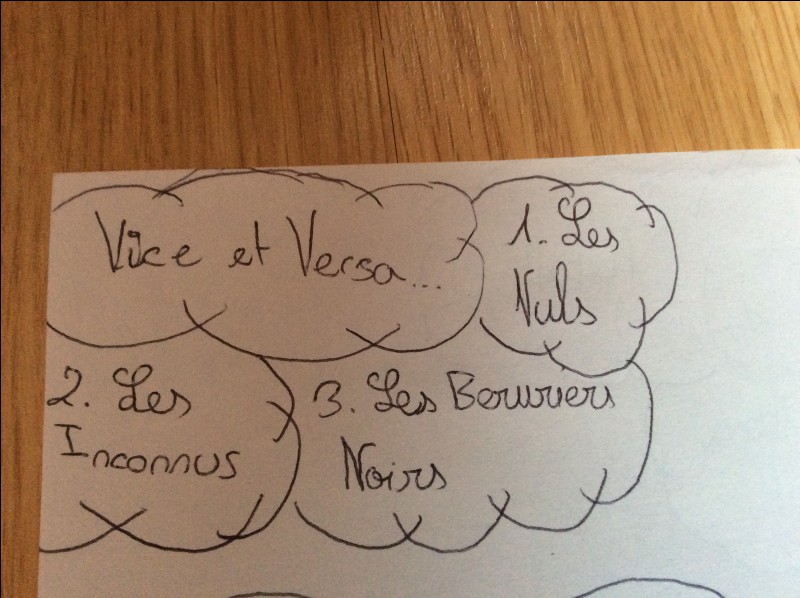 Vice et Versa...
1. Les
Nuls
2. Les
Inconnus
3. Les Beruriers
Noirs